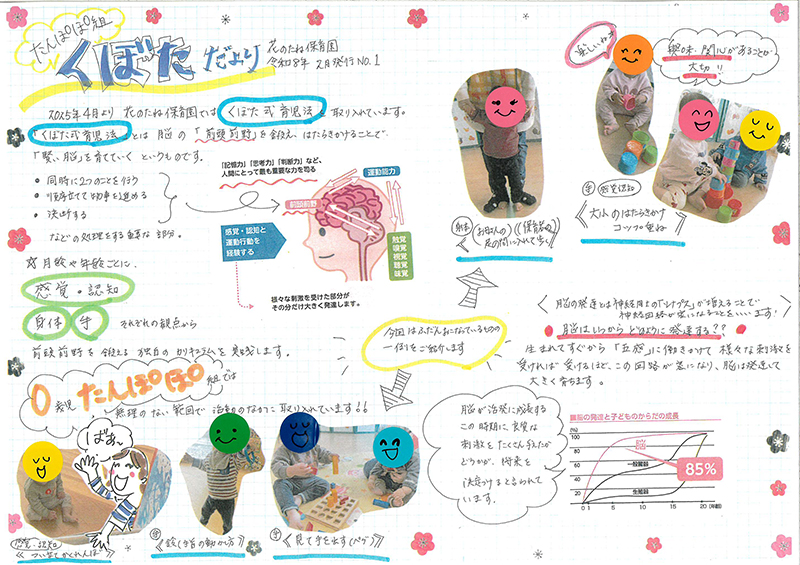 たんぽぽ組
くぼただより
花のたね保育園
令和8年 2月発行 NO.1
2025年4月より 花のたね保育園では くぼた式育児法 を取り入れています。
くぼた式育児法 とは 脳の「前頭前野」を鍛え、はたらきかけることで、
「賢い脳」を育てていく というものです。
• 同時に2つのことを行う
• 順序立てて物事を進める
• 決断する
などの処理をする重要な部分。
「記憶力」「思考力」「判断力」など、
人間にとって最も重要な力を司る
運動能力
前頭前野
感覚・認知と
運動行動を
経験する
触覚
嗅覚
視覚
聴覚
味覚
様々な刺激を受けた部分が
その分だけ大きく発達します。
月齢や年齢ごとに、
感覚・認知
身体 手 それぞれの観点から
前頭前野を鍛える 独自のカリキュラムを実践します。
0歳児 たんぽぽ組では
無理のない範囲で 活動のなかに取り入れています!!
ばあ〜
感覚・認知
《ついたてかくれんぼ》
手
手
《見て手を出す(ペグ)》
今回はふだんおこなっているものの
一例をご紹介します
楽しいね
興味・関心があることが
大切!!
身体
足の間に入れて歩く
手 感覚認知
大小のはたらきかけ
コップ重ね
脳の発達とは神経同士の「シナプス」が増えることで
神経回路が密になることをいいます!
脳はいつから どのように発達する??
生まれてすぐから「五感」に働きかけて 様々な刺激を
受ければ 受けるほど、この回路が密になり、脳は発達して
大きく育ちます。
脳が活発に成長する
この時期に良質な
刺激をたくさん与えたか
どうかが、将来を
決定づけると言われて
います。
臓器の発達と子どものからだの成長
(%)
100
80
60
40
20
0
脳
一般臓器
生殖器
85%
0 1 5 10 15 20 (年齢)